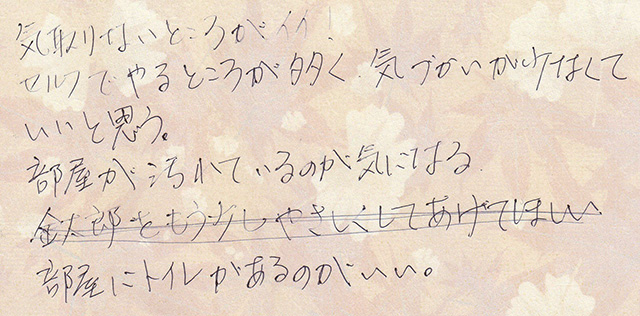 気取りないところがイイ!
セルフでやるところが多く、気づかいが少なくて
いいと思う。
部屋が汚れているのが気になる.
金太郎をもう少しやさしくしてあげてほしい
部屋にトイレがあるのがいい。